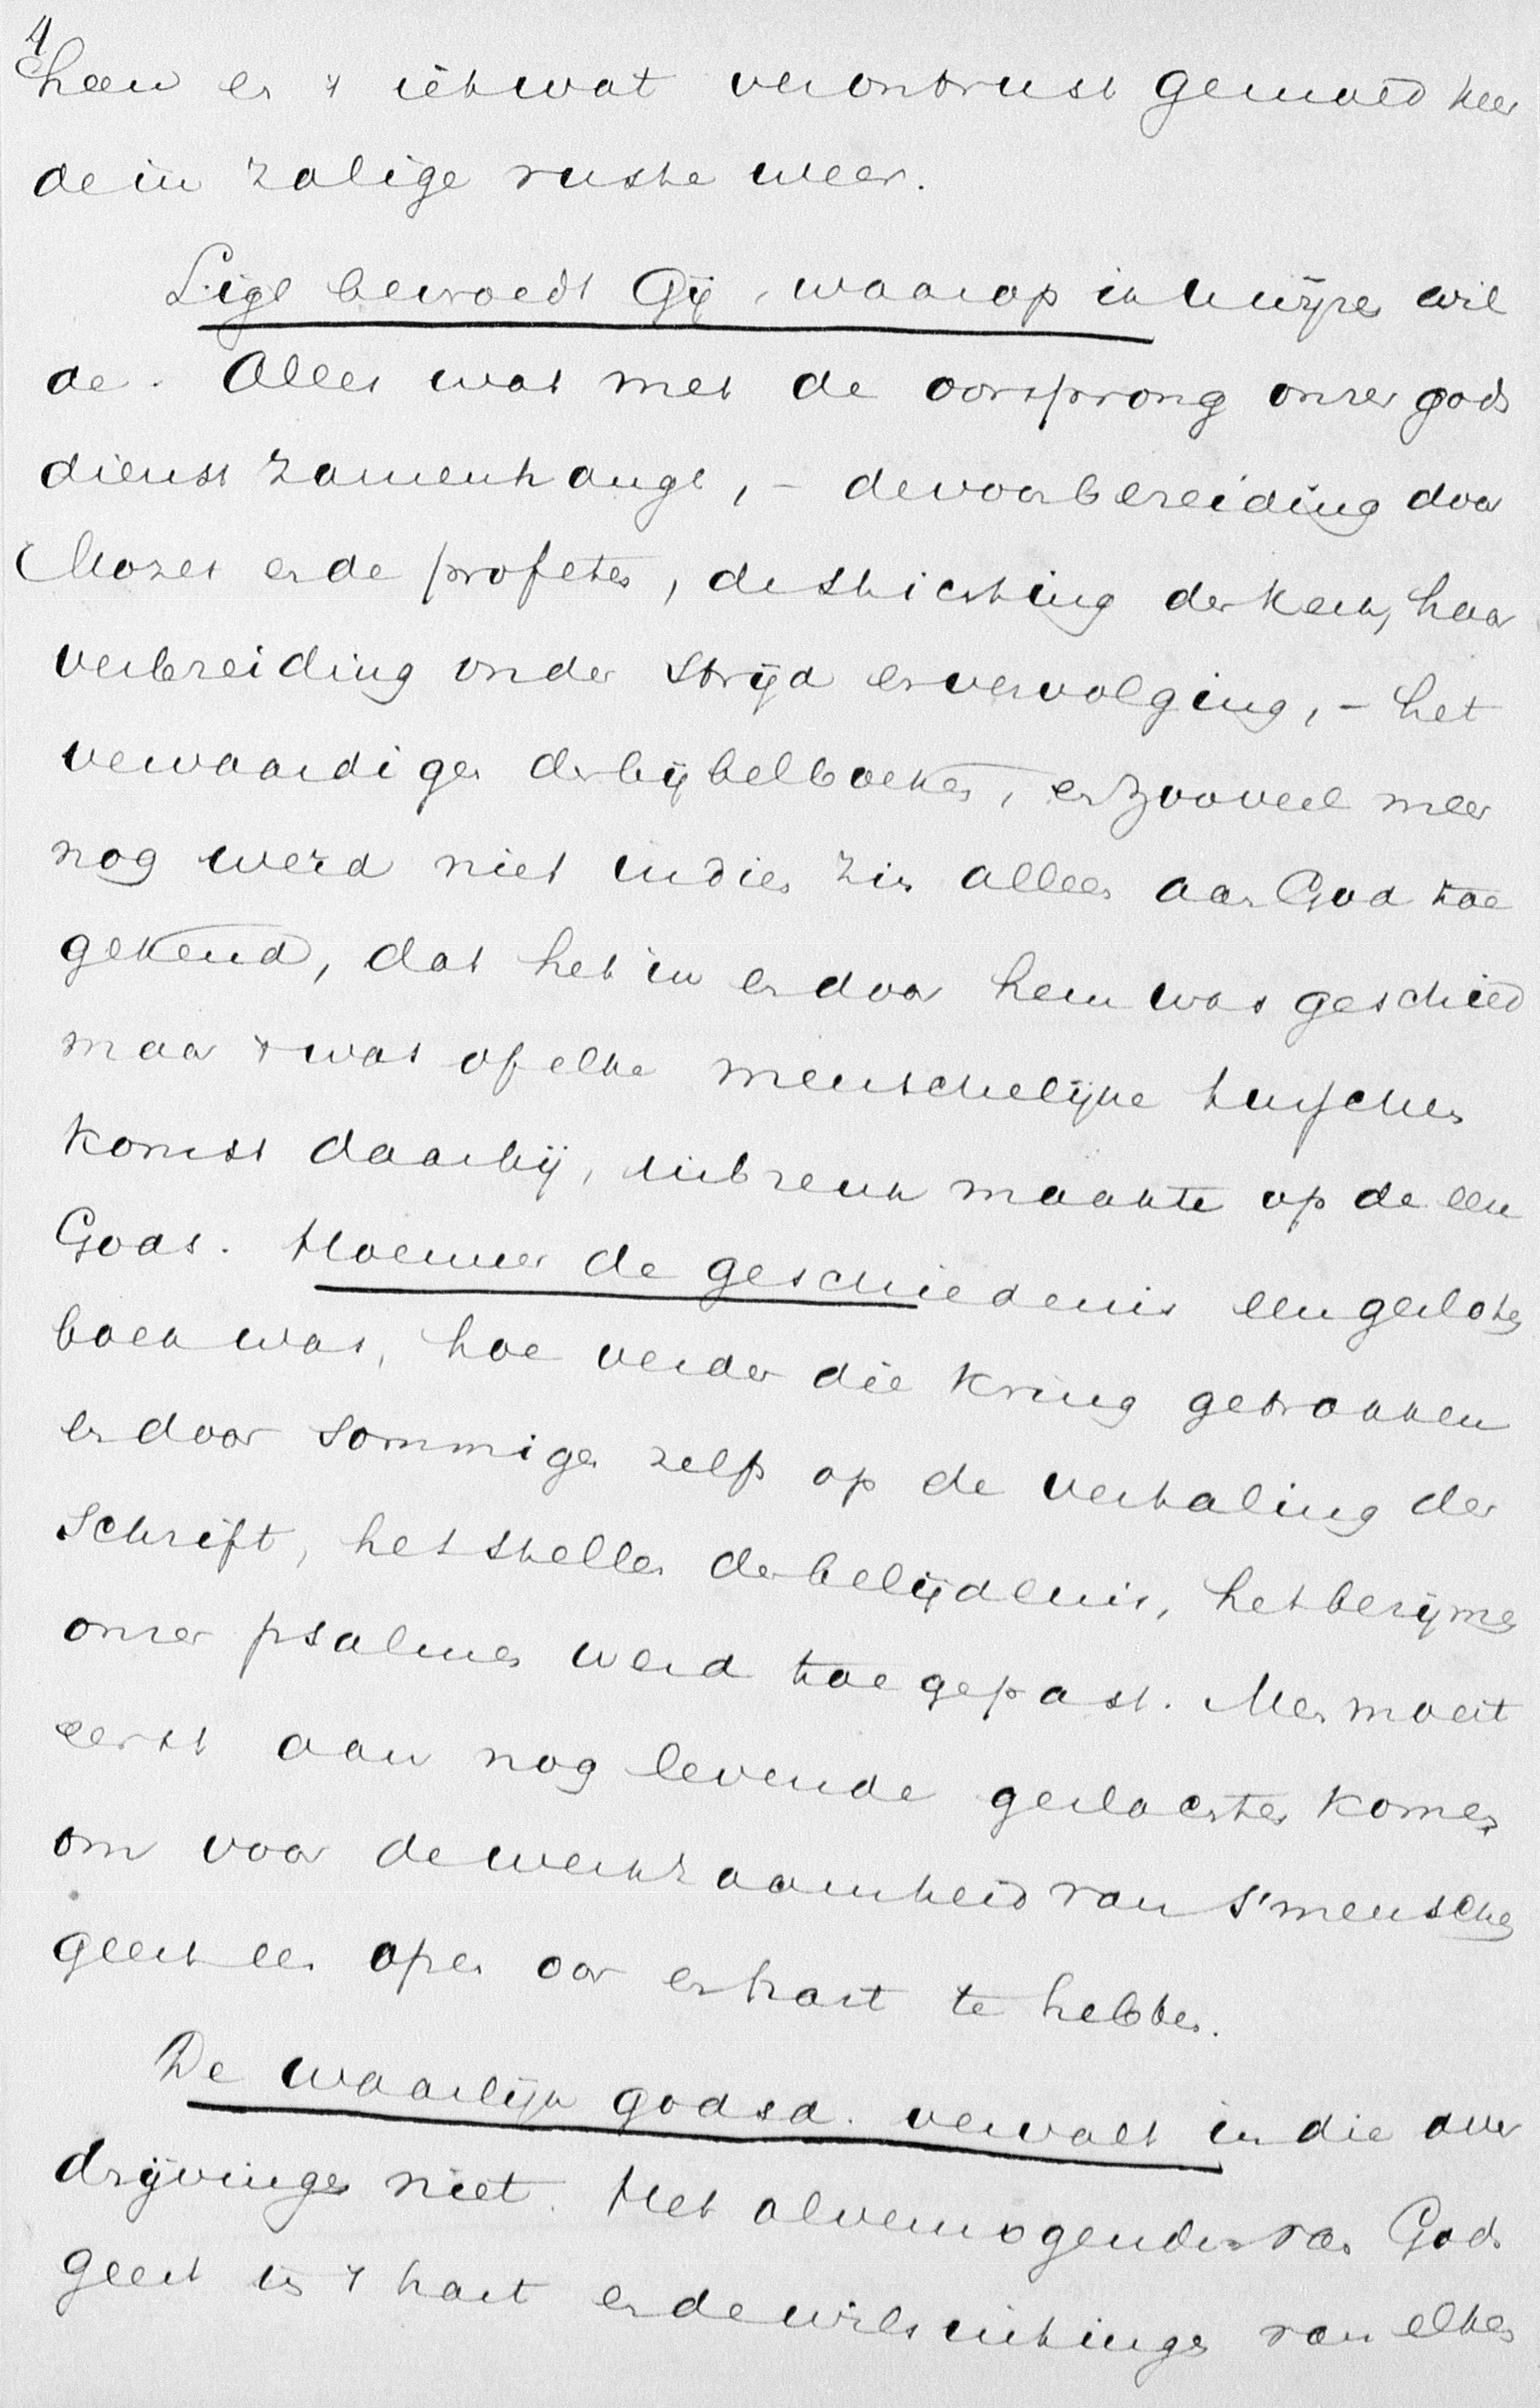 4
heen en 't ietwat verontrust gemoed keer
de in zalige ruste weer.
Ligt bevroedt Gij, waarop ik wijzen wil
de. Alles wat met de oorsprong onzer gods
dienst zamenhangt, - de voorbereiding door
Mozes en de profeten, de stichting der kerk, haar
verbreiding onder strijd en vervolging, - het
vervaardigen der bijbelboeken, en zooveel meer
nog werd niet in dien zin alleen aan God toe
gekend, dat het in en door hem was geschied
maar 't was of elke menschelijke tusschen
komst daarbij, inbreuk maakte op de eer
Gods. Hoemeer de geschiedenis een gesloten
boek was, hoe verder die kring getrokken
en door sommigen zelfs op de vertaling der
schrift, het stellen der belijdenis, het berijmen
onzer psalmen werd toegepast. Men moest
eerst aan nog levende geslachten komen
om voor de werkzaamheid van s'menschen
geest een open oor en hart te hebben.
De waarlijk godsd. vervalt in die over
drijvingen niet. Het alvermogende van Gods
geest in 't hart en de wilsuitingen van elken